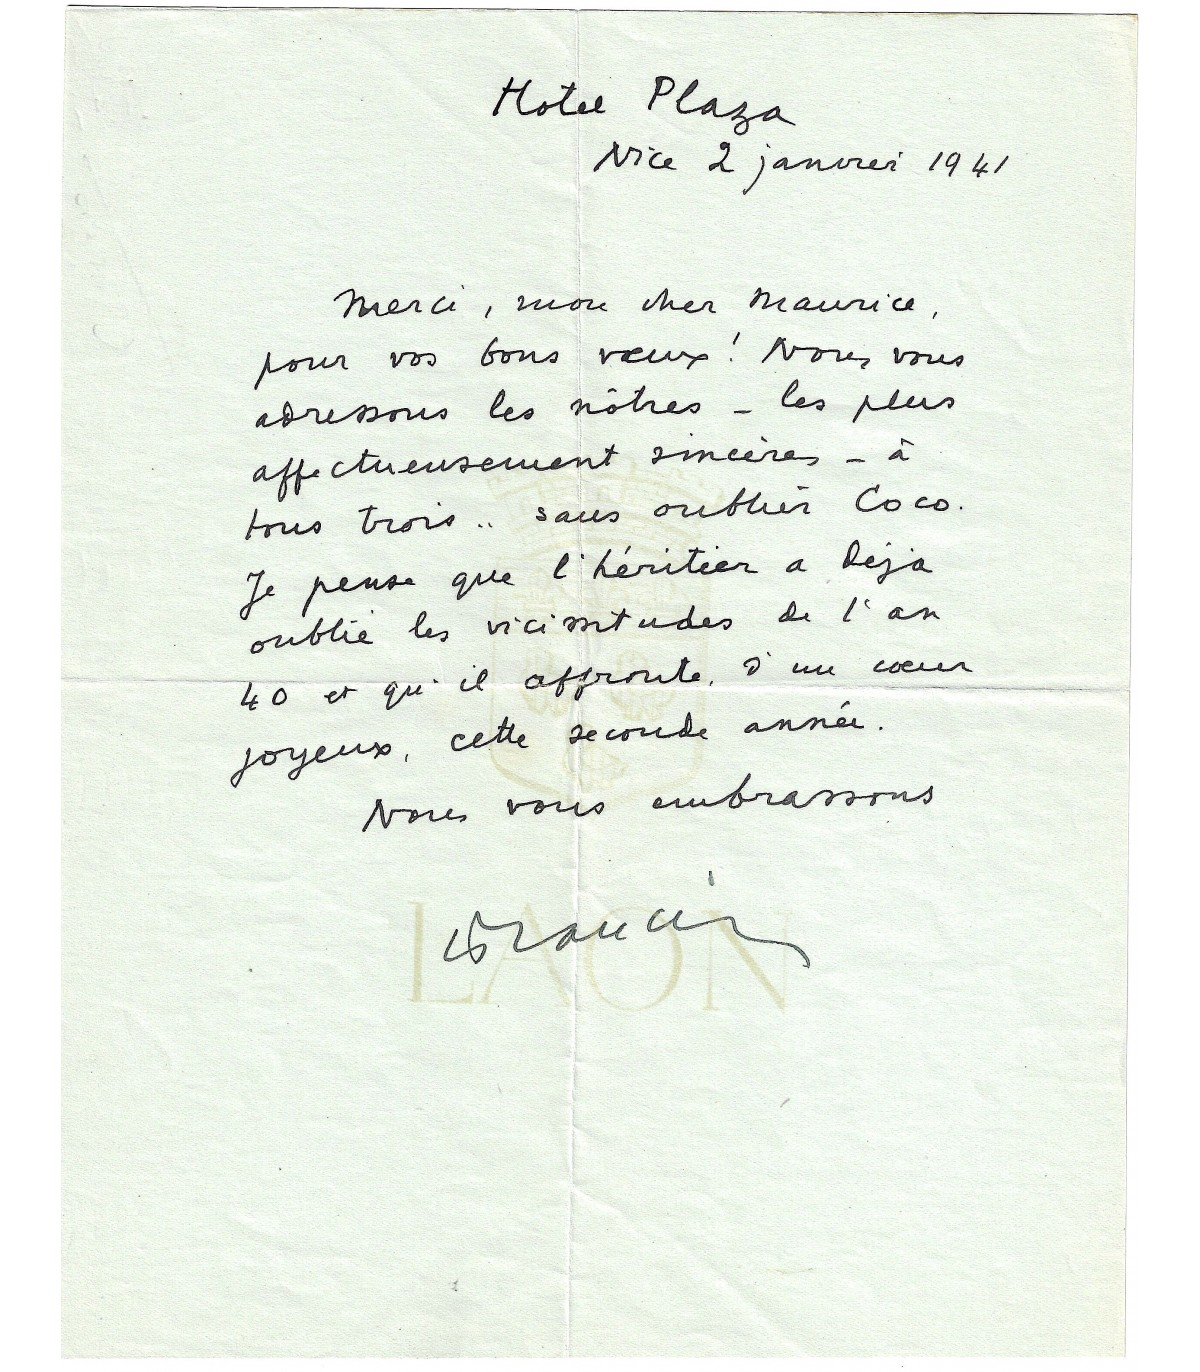 Hotel Plaza
Nice 2 janvier 1941
Merci, mon cher Maurice,
pour vos bons vœux ! Nous vous
adressons les nôtres - les plus
affectueusement sincères - à
tous trois .. sans oublier Coco.
Je pense que l'héritier a déjà
oublié les vicissitudes de l'an
40 et qu'il affronte, d'un cœur
joyeux, cette seconde année.
Nous vous embrassons
Francis
LAON